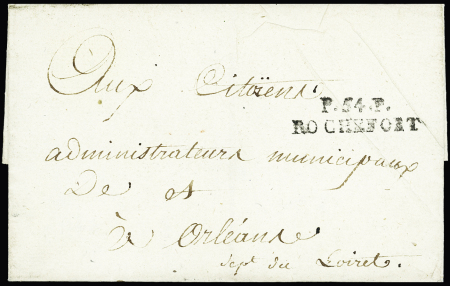 Aux Citoÿens
P.54.P.
ROCHEFORT
administrateurs municipaux
De et
à Orléans
dept du Loiret.